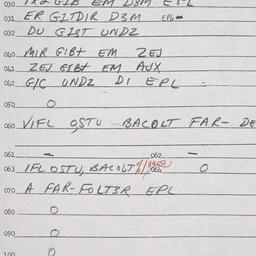 030 1X2 GIB EM D3M EPL
031 ER GITDIR D3M EPL
032 DU GIST UNDZ
040 MIR GIBT EM ZEJ
041 ZEJ GIBT EM AJX
042 GIC UNDZ DI EPL
050 O
060 VIFL OSTU BACOLT FAR- DE
061 — 062 —
063 IFL OSTU, BACOLT 064 O
070 A FAR-FOLT3R EPL
080 O
090 O
100 O